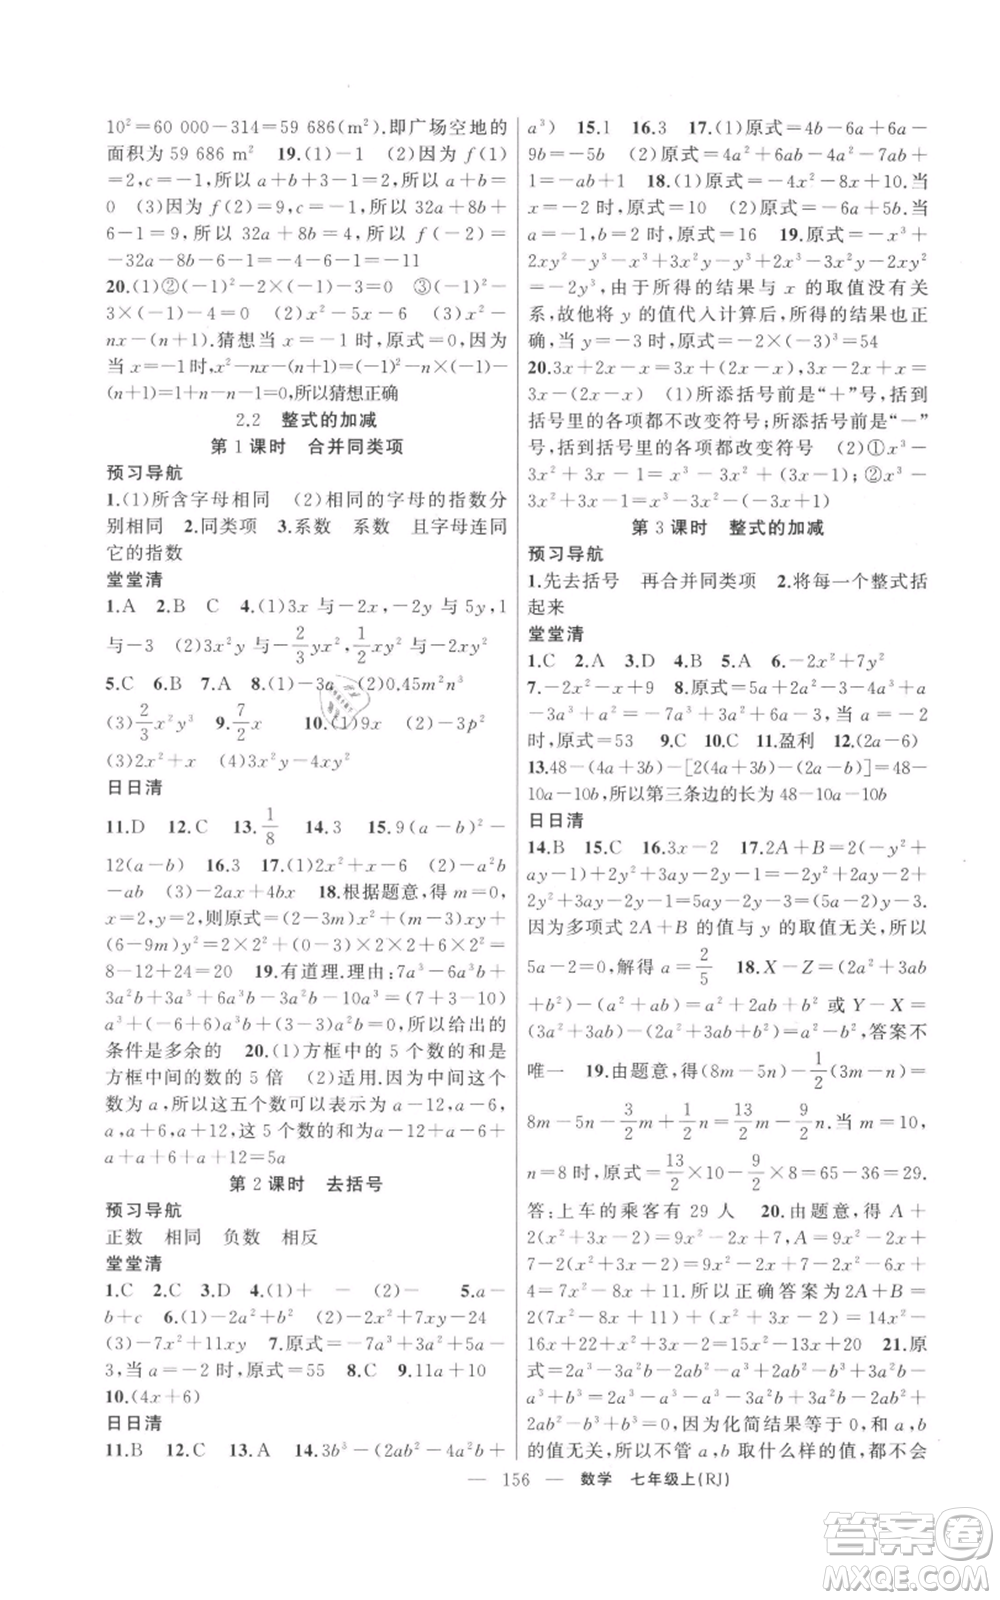 10²=60 000-314=59 686(m²).即广场空地的
面积为 59 686 m²　19.(1)-1　(2)因为 f(1)
=2,c=-1,所以 a+b+3-1=2,所以 a+b=
0　(3)因为 f(2)=9,所以 32a+8b+
6-1=9,所以 32a+8b=4,所以 f(-2)=
-32a-8b-6-1=-4-6-1=-11
20.(1)②(-1)²-2×(-1)-3=0　③(-1)²-
3×(-1)-4=0　(2)x²-5x-6　(3)x²-
nx-(n+1).猜想当 x=-1 时,原式=0,因为
当 x=-1 时,x²-nx-(n+1)=(-1)²-n×(-1)-
(n+1)=1+n-n-1=0,所以猜想正确
2.2　整式的加减
第 1 课时　合并同类项
预习导航
1.(1)所含字母相同　(2)相同的字母的指数分
别相同　2.同类项　3.系数　系数　且字母连同
它的指数
堂堂清
1.A　2.B　C　4.(1)3x 与-2x,-2y 与 5y,1
与-3　(2)3x²y 与-2/3yx²,1/2xy² 与-2xy²
5.C　6.B　7.A　8.(1)-3a　(2)0.45m²n³
(3)2/3x²y³　9.7/2x　10.(1)9x　(2)-3p²
(3)-2x²+x　(4)3x²y-10xy²
日日清
11.D　12.C　13.1/8　14.3　15.9(a-b)²-
12(a-b)　16.3　17.(1)2x²+x-6　(2)-a²b
-ab　(3)-2ax+4bx　18.根据题意,得 m=0,
x=2,则原式=(2-3m)x²+(-3+m)xy+
(6-9m)y²=2×2²+(0-3)×2×2+6×2²=
8-12+24=20　19.有道理.理由:7a³-6a³b+
3a²b+3a³+6a³b-3a²b-10a³=(7+3-10)
a³+(-6+6)a³b+(3-3)a²b=0,所以给出的
条件是多余的　20.(1)方框中的 5 个数的和是
方框中间的数的 5 倍　(2)适用.因为中间这个
数为 a,所以这五个数可以表示为 a-12,a-6,
a,a+6,a+12,这 5 个数的和为a-12+a-6+
a+a+6+a+12=5a
第 2 课时　去括号
预习导航
正数　相同　负数　相反
堂堂清
1.C　2.C　3.D　4.(1)+　-　(2)-　　5.a-
b+c　6.(1)-2a²+b²　(2)-4x²+7xy-24
(3)-7x²+11xy　7.原式=-7a³+3a²+5a-
3,当 a=-2 时,原式=55　8.C　9.11a+10
10.(4x+6)
日日清
11.B　12.C　13.A　14.3b³-(2ab²-4a²b+
a³)　15.1　16.3　17.(1)原式=4b-6a+6a-
9b=-5b　(2)原式=4a²+6ab-4a²-7ab+
1=-ab+1　18.(1)原式=-4x²-8x+10.当
x=-2 时,原式=10　(2)原式=-6a+5b.当
a=-1,b=2 时,原式=16　19.原式=-x³+
2xy²-y³-x³+3x²y-y³+2x³-3x²y-2xy²
=-2y³,由于所得的结果与 x 的取值没有关
系,故他将 y 的值代入计算后,所得的结果也正
确,当 y=-3 时,原式=-2×(-3)³=54
20.3x+2x-x=3x+(2x-x),3x-2x+x=
3x-(2x-x)　(1)所添括号前是“+”号,括到
括号里的各项都不改变符号;所添括号前是“-”
号,括到括号里的各项都改变符号　(2)①x³-
3x²+3x-1=x³-(3x²-3x+1);②x³-
3x²+3x-1=x³-3x²-(-3x+1)
第 3 课时　整式的加减
预习导航
1.先去括号　再合并同类项　2.将每一个整式括
起来
堂堂清
1.C　2.A　3.D　4.B　5.A　6.-2x²+7y²
7.-2x²-x+9　8.原式=5a+2a²-3-8a³-
8a³+7a-6a²=-16a³-4a²+12a-3,当 a=-2
时,原式=53　9.C　10.C　11.盈利　12.(2a-6)
13.48-(4a+3b)-[2(4a+3b)-(2a-b)]=48-
10a-10b,所以第三条边的长为 48-10a-10b
日日清
14.B　15.C　16.3x-2　17.2A+B=2(y²+
ay-1)+(2y²+3ay-2y-1)=2y²+2ay-2+
2y²+3ay-2y-1=4y²+5ay-2y-3=4y²+(5a-2)y-3.
因为多项式 2A+B 的值与 y 的取值无关,所以
5a-2=0,解得 a=2/5　18.X-Z=(2a²+3ab
+b²)-(a²+ab)=a²+2ab+b² 或 Y-X=
(3a²+3ab)-(2a²+3ab+b²)=a²-b²,答案不
唯一　19.由题意,得(8m-5n)-1/2(3m-n)=
8m-5n-3/2m+1/2n=13/2m-9/2n.当 m=10,
n=8 时,原式=13/2×10-9/2×8=65-36=29.
答:上车的乘客有 29 人　20.由题意,得 A+
2(x²+3x-2)=9x²-2x+7,A=9x²-2x+
7-2(x²+3x-2)=9x²-2x+7-2x²-6x+
4=7x²-8x+11.所以正确答案为 2A+B=
2(7x²-8x+11)+(x²+3x-2)=14x²-
16x+22+x²+3x-2=15x²-13x+20　21.原